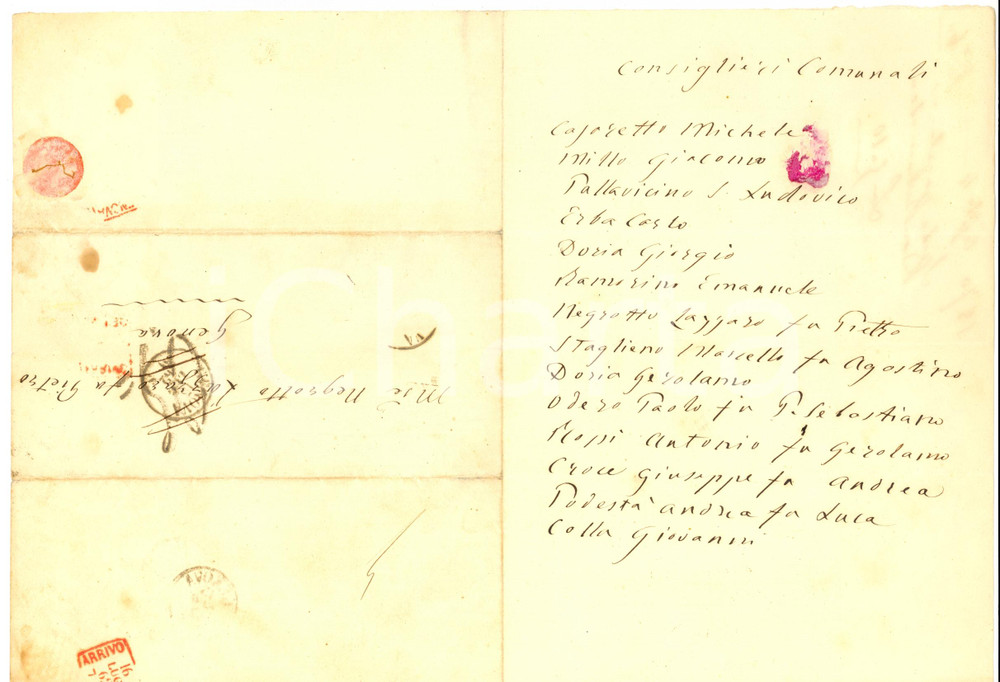 Consiglieri Comunali
Casoretto Michele
Millo Giacomo
Pallavicino S. Ludovico
Erba Carlo
Doria Giorgio
Ramorino Emanuele
Negrotto Lazzaro fu Pietro
Staglieno Marcello fu Agostino
Doria Gerolamo
Odero Paolo fu P. Sebastiano
Rossi Antonio fu Gerolamo
Croce Giuseppe fu Andrea
Podestà Andrea fu Luca
Colla Giovanni
Negrotto Lazzaro fu Pietro
Genova
ARRIVO
16
LUG